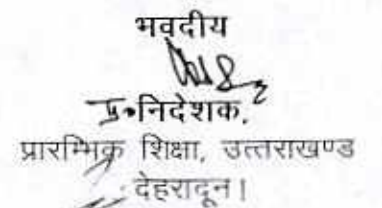 भवदीय
प्र०निदेशक,
प्रारम्भिक शिक्षा, उत्तराखण्ड
देहरादून।